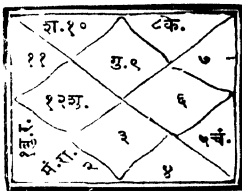 श. १० ८ के.
११ गु. ९ ७
१२ शु. ६
१ बु. र. ३ ५ चं.
मं. रा. २ ४